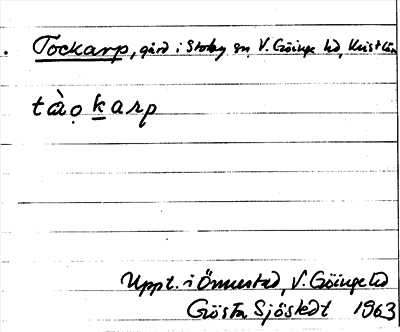 Tockarp, gård i Stoby sn, V. Göinge hd, Krist län
tàọ karp
Uppt. i Önnestad, V. Göinge hd
Gösta Sjöstedt 1963